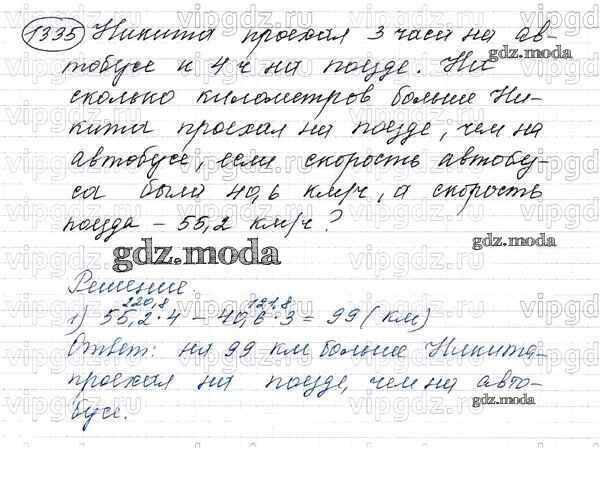 1335 Никита проехал 3 часа на ав-
тобусе и 4 ч на поезде. На
сколько километров больше Ни-
кита проехал на поезде, чем на
автобусе, если скорость автобу-
са была 40,6 км/ч, а скорость
поезда – 55,2 км/ч?
gdz.moda
Решение.
220,8 121,8
1) 55,2·4 – 40,6·3 = 99 (км)
Ответ: на 99 км больше Никита
проехал на поезде, чем на авто-
бусе.
gdz.moda
gdz.moda
gdz.moda
gdz.moda
vipgdz.ru